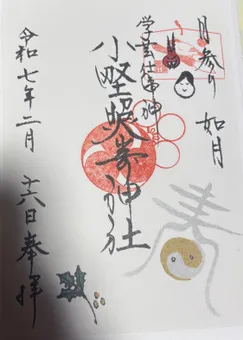 月参り
如月
学芸仕事神
小野照崎神社
令和七年二月
十六日奉拝
春